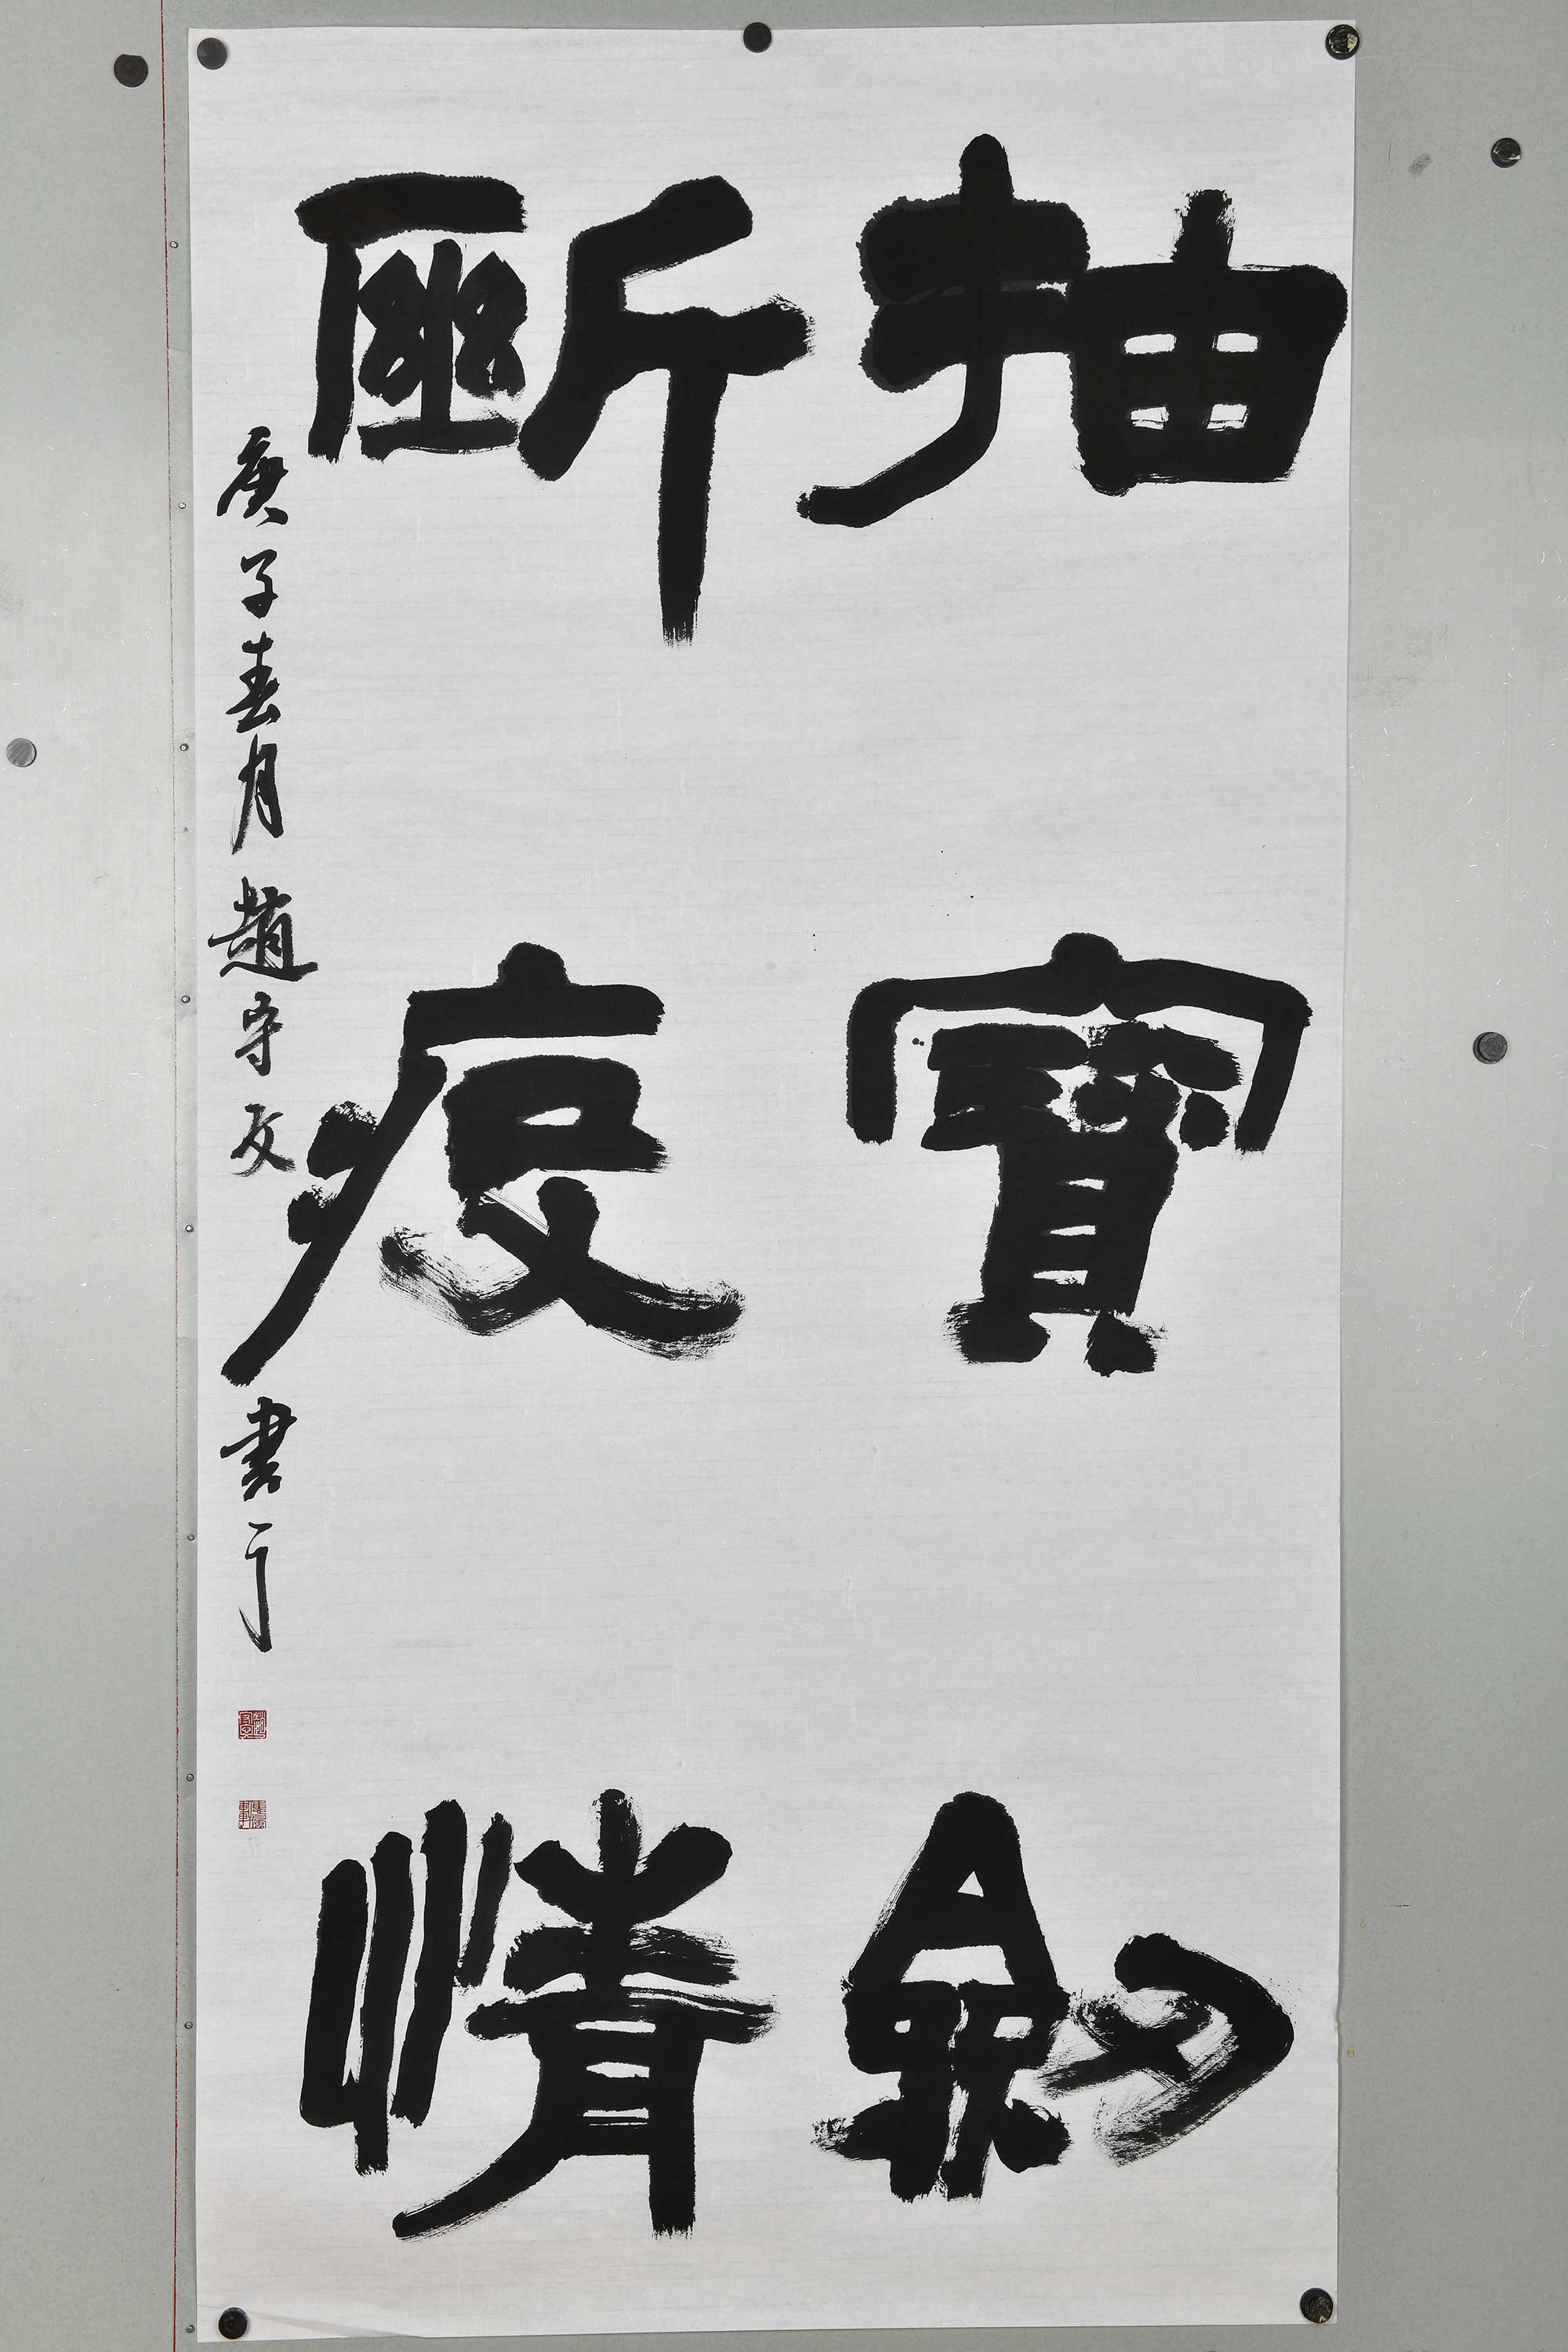 抽寶劍
斬疫情
庚子春月趙守友書于